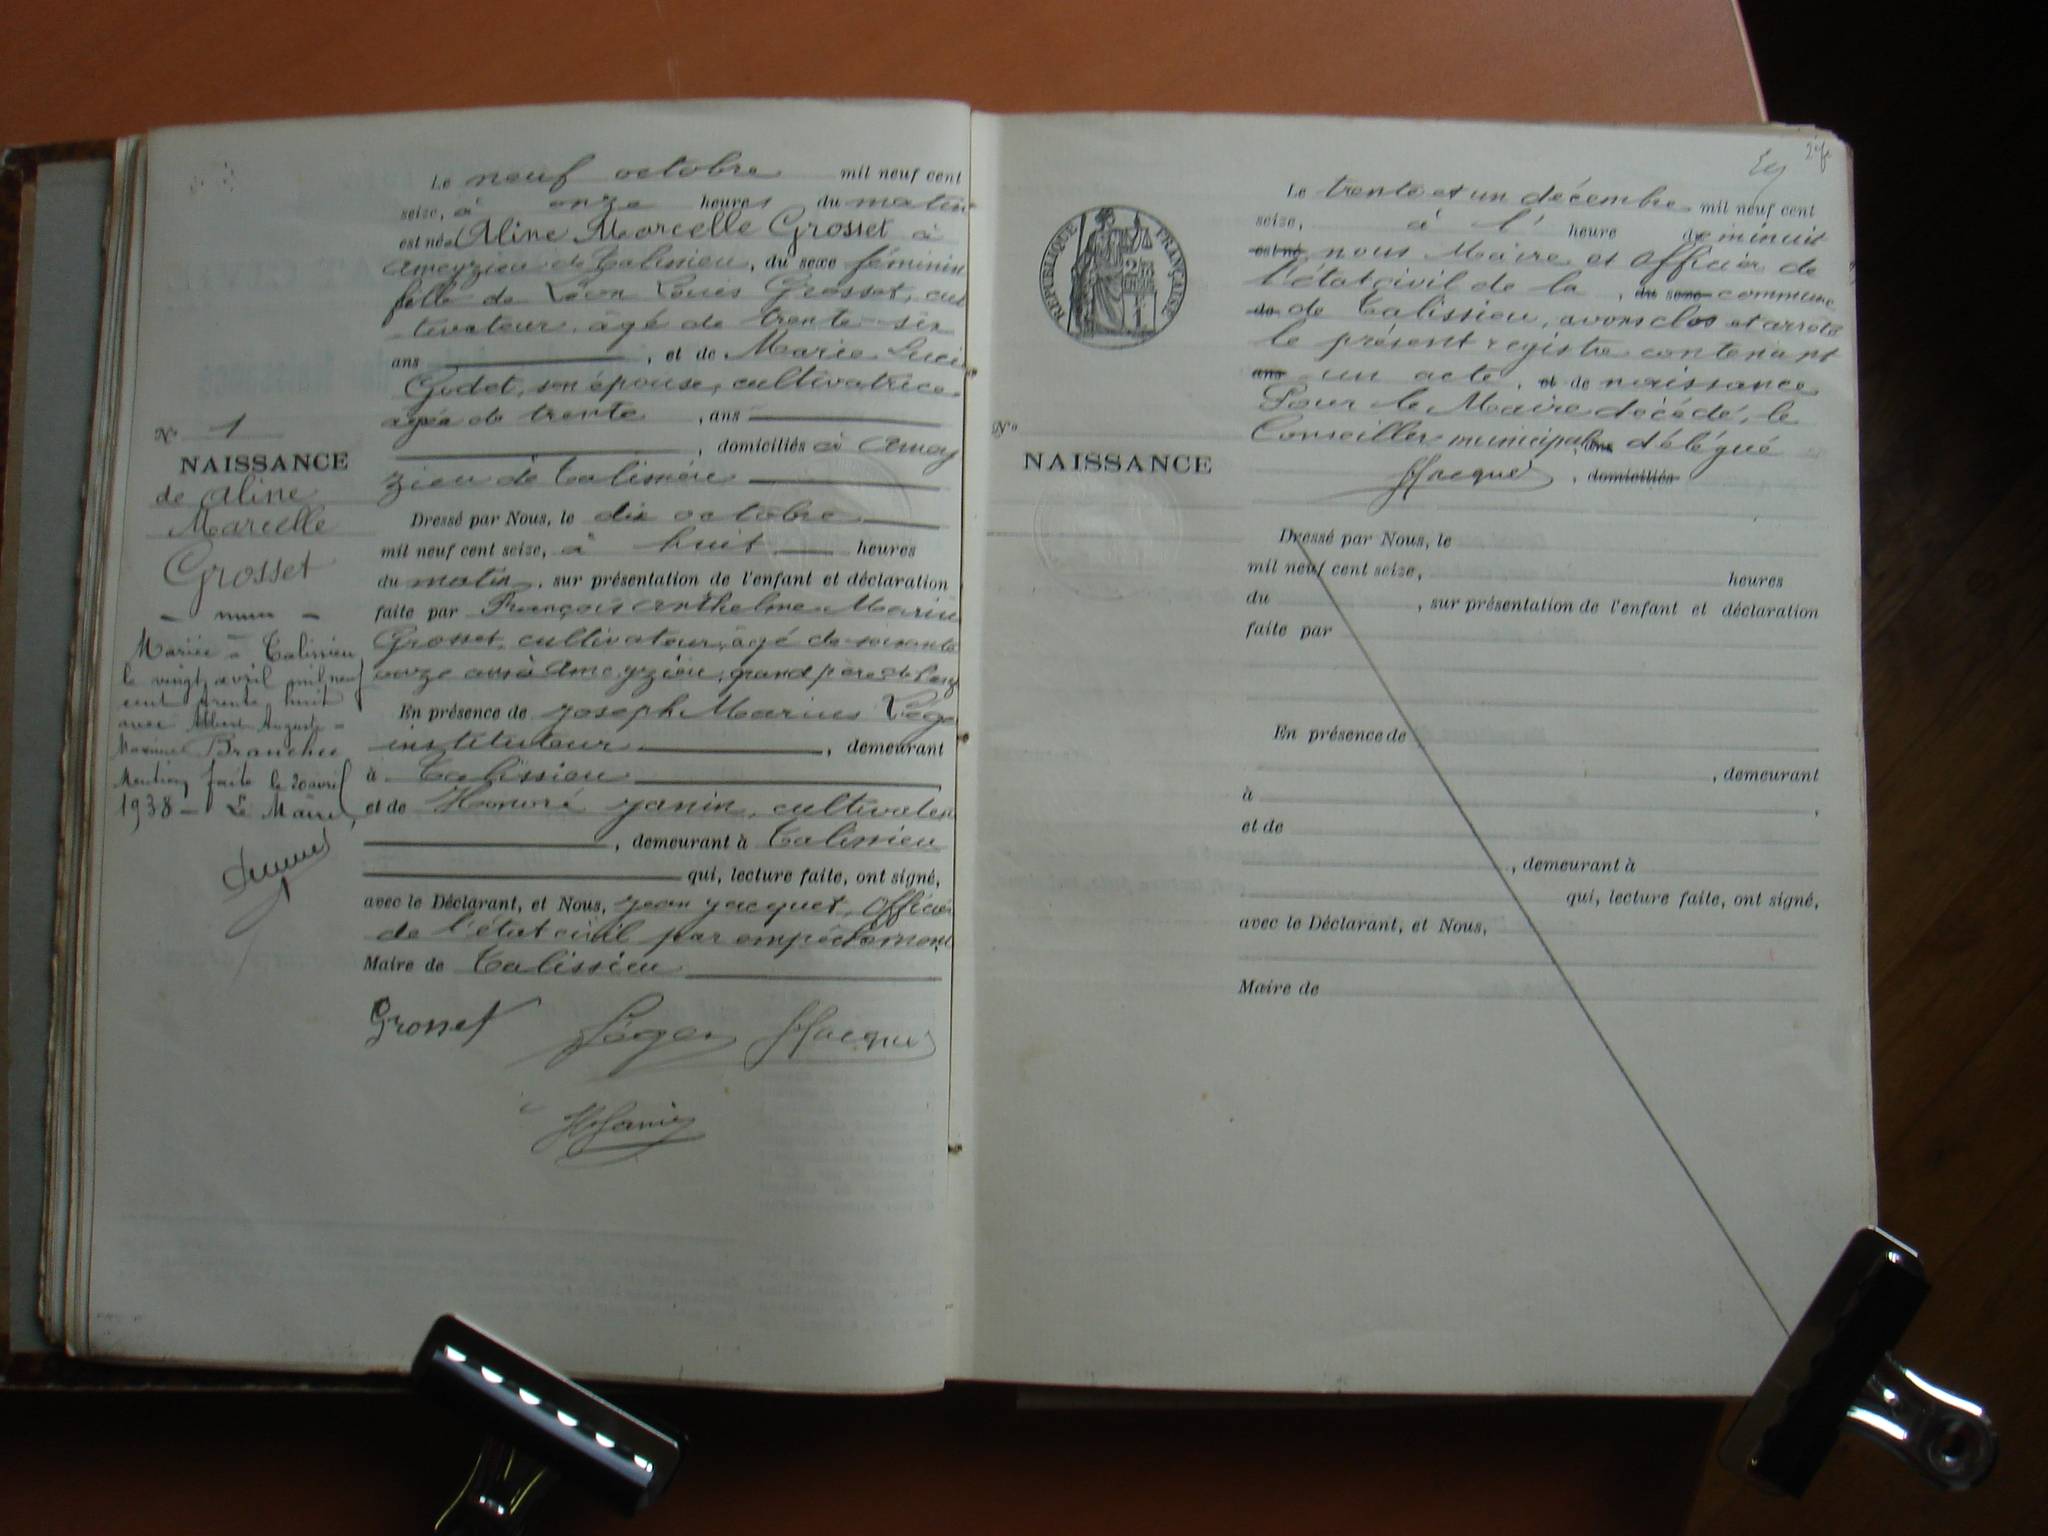 Le neuf octobre mil neuf cent
seize, à onze heures du matin
est née Aline Marcelle Grosset à
Ameyzieu de Talissieu, du sexe féminin
fille de Léon Louis Grosset, cul
tivateur, âgé de trente-six
ans, et de Marie Luci
Godet, son épouse, cultivatrice
âgée de trente, ans
, domiciliés à Amey
zieu de Talissieu
Dressé par Nous, le dix octobre
mil neuf cent seize, à huit heures
du matin, sur présentation de l'enfant et déclaration
faite par François Anthelme Marin
Grosset, cultivateur, âgé de soixante
onze ans à Ameyzieu, grand père de l'enf
En présence de Joseph Marius Lége
instituteur, demeurant
à Talissieu,
et de Honoré Janin, cultivateu
, demeurant à Talissieu
qui, lecture faite, ont signé,
avec le Déclarant, et Nous, Jean Jacquet, Officier
de l'état civil par empêchement
Maire de Talissieu
Grosset Léger JJacquet
HJanin
No 1
NAISSANCE
de Aline
Marcelle
Grosset
Mariée à Talissieu
le vingt avril mil neuf
cent trente huit
avec Albert Auguste
Maxime Branche
Mention faite le 20 avril
1938 - Le Maire,
Le trente et un décembre mil neuf cent
seize, à l' heure de minuit
est né nous Maire et Officier de
l'état civil de la, du sexe commune
de de Talissieu, avons clos et arrêté
le présent registre contenant
ans un acte, et de naissance
Pour le Maire décédé, le
Conseiller municipal, ans délégué
JJacquet, domiciliés
RÉPUBLIQUE FRANÇAISE
No
NAISSANCE
Dressé par Nous, le
mil neuf cent seize, heures
du, sur présentation de l'enfant et déclaration
faite par
En présence de
, demeurant
à,
et de
, demeurant à
qui, lecture faite, ont signé,
avec le Déclarant, et Nous,
Maire de